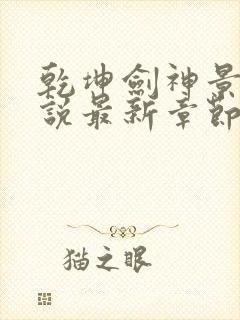 乾坤劍神景
說最新章節
猫之眼